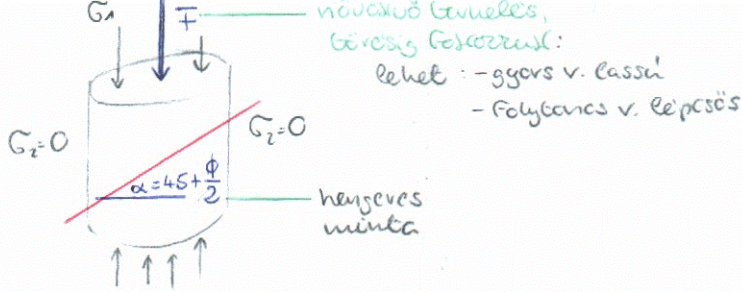 σ₁
F
növekvő terhelés,
törésig fokozzuk:
lehet: - gyors v. lassú
- folytonos v. lépcsős
σ₂=0
σ₂=0
α=45+ϕ/2
hengeres
minta